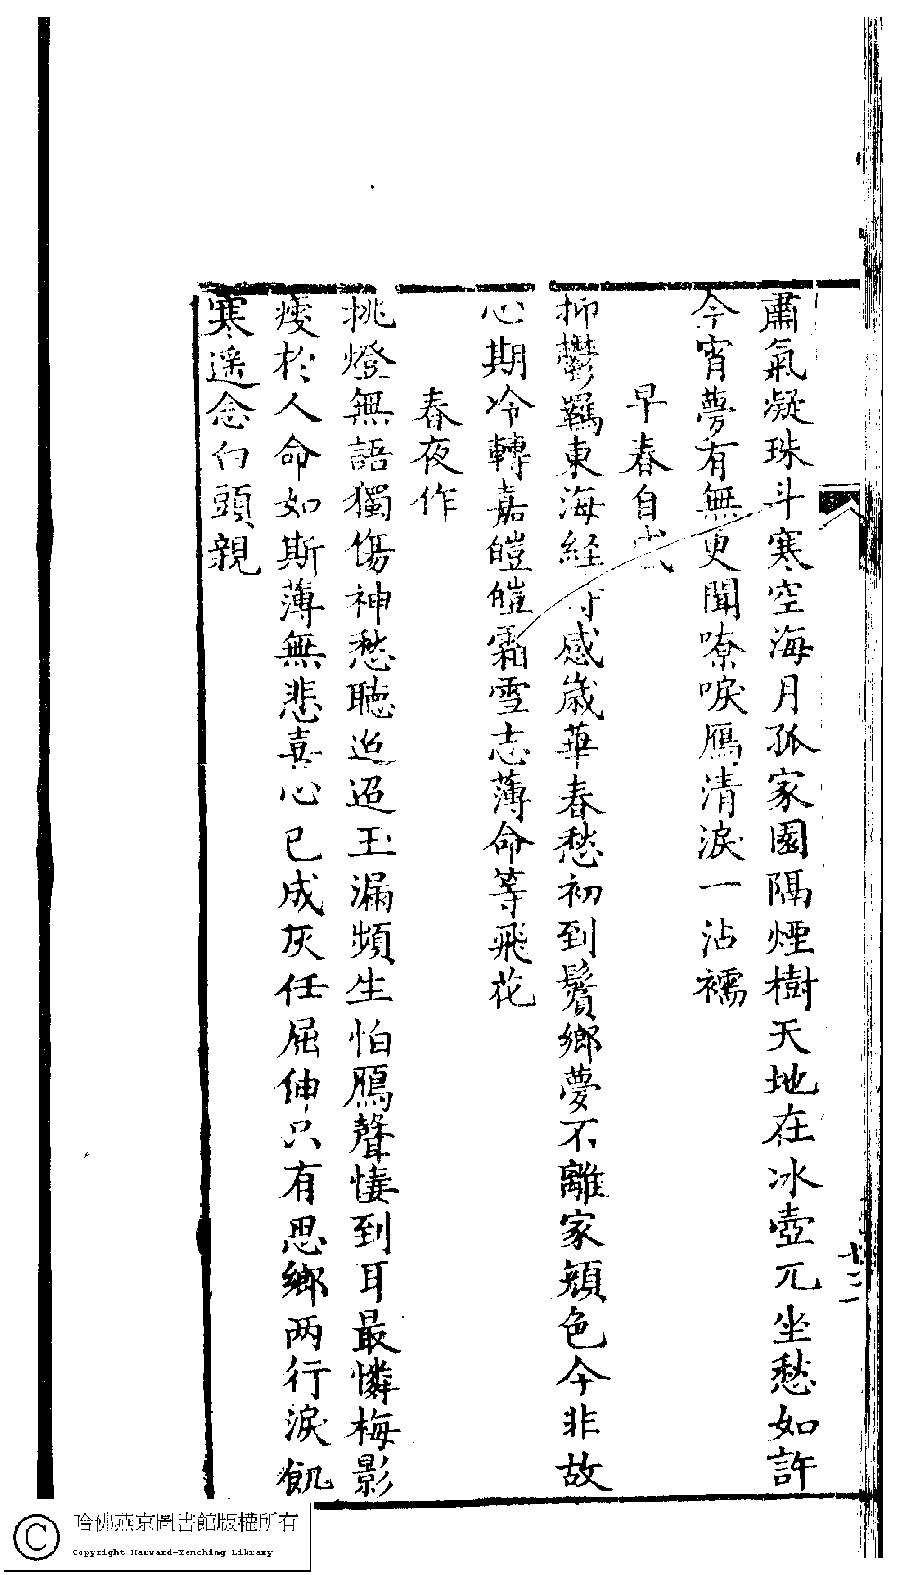 肅氣凝珠斗寒空海月孤家園隔煙樹天地在冰壺兀坐愁如許
今宵夢有無更聞嘹唳鴈清淚一沾襦
早春自
抑鬱羈東海経感歳華春愁初到鬢鄉夢不離家頰色今非故
心期冷轉嘉皚皚霜雪志薄命等飛花
春夜作
挑燈無語獨傷神愁聽迢迢玉漏頻生怕鴈聲悽到耳最憐梅影
瘦於人命如斯薄無悲喜心已成灰任屈伸只有思鄉兩行淚飢
寒遥念白頭親
哈佛燕京圖書館版權所有
Copyright Harvard-Yenching Library